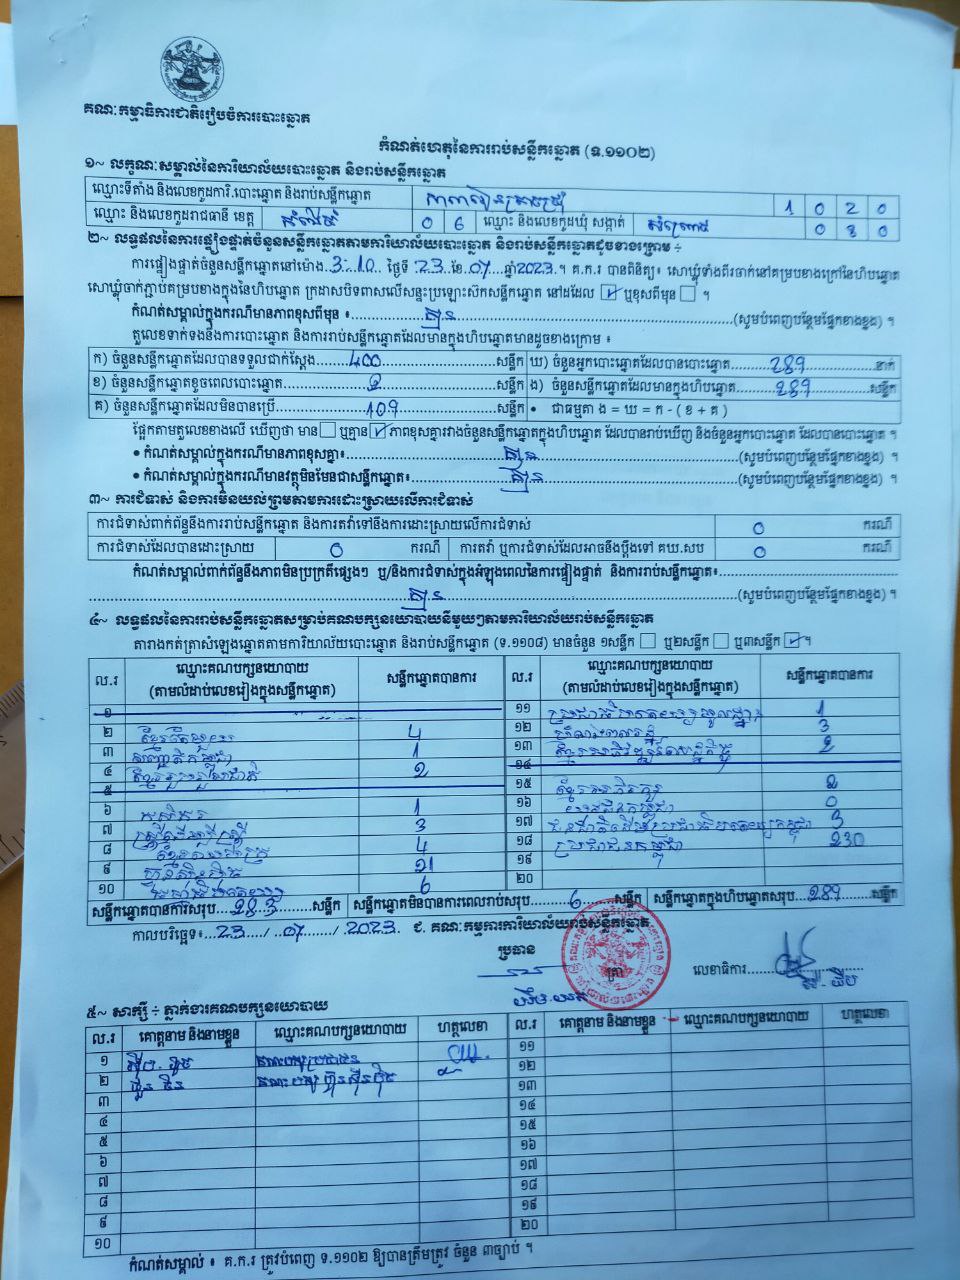 គណៈកម្មាធិការជាតិរៀបចំការបោះឆ្នោត
កំណត់ហេតុនៃការរាប់សន្លឹកឆ្នោត (ទ.១១០២)
១~ លក្ខណៈសម្គាល់នៃការិយាល័យបោះឆ្នោត និងរាប់សន្លឹកឆ្នោត
ឈ្មោះទីតាំង និងលេខកូដការិ.បោះឆ្នោត និងរាប់សន្លឹកឆ្នោត 1 0 2 0
ឈ្មោះ និងលេខកូដរាជធានី ខេត្ត 0 6 ឈ្មោះ និងលេខកូដឃុំ សង្កាត់ 0 3 0
២~ លទ្ធផលនៃការផ្ទៀងផ្ទាត់ចំនួនសន្លឹកឆ្នោតតាមការិយាល័យបោះឆ្នោត និងរាប់សន្លឹកឆ្នោតដូចខាងក្រោម ÷
ការផ្ទៀងផ្ទាត់ចំនួនសន្លឹកឆ្នោតនៅម៉ោង 3:10 ថ្ងៃទី 23 ខែ 07 ឆ្នាំ2023។ គ.ក.រ បានពិនិត្យ៖ សោឃ្លុំទាំងពីរចាក់នៅគម្របខាងក្រៅនៃហិបឆ្នោត
សោឃ្លុំចាក់ភ្ជាប់គម្របខាងក្នុងនៃហិបឆ្នោត ក្រដាសបិទពាសលើសន្ទះប្រឡោះស៊កសន្លឹកឆ្នោត នៅដដែល ✓ ឬខុសពីមុន ។
កំណត់សម្គាល់ក្នុងករណីមានភាពខុសពីមុន ៖ គ្មាន (សូមបំពេញបន្ថែមផ្នែកខាងខ្នង) ។
តួលេខទាក់ទងនឹងការបោះឆ្នោត និងការរាប់សន្លឹកឆ្នោតដែលមានក្នុងហិបឆ្នោតមានដូចខាងក្រោម ៖
ក) ចំនួនសន្លឹកឆ្នោតដែលបានទទួលជាក់ស្ដែង 400 សន្លឹក ឃ) ចំនួនអ្នកបោះឆ្នោតដែលបានបោះឆ្នោត 289 នាក់
ខ) ចំនួនសន្លឹកឆ្នោតខូចពេលបោះឆ្នោត 2 សន្លឹក ង) ចំនួនសន្លឹកឆ្នោតដែលមានក្នុងហិបឆ្នោត 289 សន្លឹក
គ) ចំនួនសន្លឹកឆ្នោតដែលមិនបានប្រើ 109 សន្លឹក • ជាធម្មតា ង = ឃ = ក - ( ខ + គ )
ផ្អែកតាមតួលេខខាងលើ ឃើញថា មាន ឬគ្មាន ✓ ភាពខុសគ្នារវាងចំនួនសន្លឹកឆ្នោតក្នុងហិបឆ្នោត ដែលបានរាប់ឃើញ និងចំនួនអ្នកបោះឆ្នោត ដែលបានបោះឆ្នោត ។
• កំណត់សម្គាល់ក្នុងករណីមានភាពខុសគ្នា៖ គ្មាន (សូមបំពេញបន្ថែមផ្នែកខាងខ្នង) ។
• កំណត់សម្គាល់ក្នុងករណីមានវត្ថុមិនមែនជាសន្លឹកឆ្នោត៖ គ្មាន (សូមបំពេញបន្ថែមផ្នែកខាងខ្នង) ។
៣~ ការជំទាស់ និងការមិនយល់ព្រមតាមការដោះស្រាយលើការជំទាស់
ការជំទាស់ពាក់ព័ន្ធនឹងការរាប់សន្លឹកឆ្នោត និងការតវ៉ាទៅនឹងការដោះស្រាយលើការជំទាស់ 0 ករណី
ការជំទាស់ដែលបានដោះស្រាយ 0 ករណី ការតវ៉ា ឬការជំទាស់ដែលអាចនឹងប្ដឹងទៅ គឃ.សប 0 ករណី
កំណត់សម្គាល់ពាក់ព័ន្ធនឹងភាពមិនប្រក្រតីផ្សេងៗ ឬ/និងការជំទាស់ក្នុងអំឡុងពេលនៃការផ្ទៀងផ្ទាត់ និងការរាប់សន្លឹកឆ្នោត៖
គ្មាន (សូមបំពេញបន្ថែមផ្នែកខាងខ្នង) ។
៤~ លទ្ធផលនៃការរាប់សន្លឹកឆ្នោតសម្រាប់គណបក្សនយោបាយនីមួយៗតាមការិយាល័យរាប់សន្លឹកឆ្នោត
តារាងកត់ត្រាសំឡេងឆ្នោតតាមការិយាល័យបោះឆ្នោត និងរាប់សន្លឹកឆ្នោត (ទ.១១០៨) មានចំនួន ១សន្លឹក ឬ២សន្លឹក ឬ៣សន្លឹក ✓ ។
ល.រ ឈ្មោះគណបក្សនយោបាយ (តាមលំដាប់លេខរៀងក្នុងសន្លឹកឆ្នោត) សន្លឹកឆ្នោតបានការ ល.រ ឈ្មោះគណបក្សនយោបាយ (តាមលំដាប់លេខរៀងក្នុងសន្លឹកឆ្នោត) សន្លឹកឆ្នោតបានការ
១ ១១ 1
២ 4 ១២ 3
៣ 1 ១៣ 2
៤ 2 ១៤
៥ ១៥ 2
៦ 1 ១៦ 0
៧ 3 ១៧ 3
៨ 4 ១៨ ប្រជាជនកម្ពុជា 230
៩ 21 ១៩
១០ 6 ២០
សន្លឹកឆ្នោតបានការសរុប 283 សន្លឹក សន្លឹកឆ្នោតមិនបានការពេលរាប់សរុប 6 សន្លឹក សន្លឹកឆ្នោតក្នុងហិបឆ្នោតសរុប 289 សន្លឹក
កាលបរិច្ឆេទ៖ 23 / 07 / 2023 ជ. គណៈកម្មការការិយាល័យរាប់សន្លឹកឆ្នោត
ប្រធាន
ត្រា
លេខាធិការ
៥~ សាក្សី ÷ ភ្នាក់ងារគណបក្សនយោបាយ
ល.រ គោត្តនាម និងនាមខ្លួន ឈ្មោះគណបក្សនយោបាយ ហត្ថលេខា ល.រ គោត្តនាម និងនាមខ្លួន ឈ្មោះគណបក្សនយោបាយ ហត្ថលេខា
១ គណបក្សប្រជាជន ១១
២ គណបក្ស ហ៊្វុនស៊ិនប៉ិច ១២
៣ ១៣
៤ ១៤
៥ ១៥
៦ ១៦
៧ ១៧
៨ ១៨
៩ ១៩
១០ ២០
កំណត់សម្គាល់ ៖ គ.ក.រ ត្រូវបំពេញ ទ.១១០២ ឱ្យបានត្រឹមត្រូវ ចំនួន ៣ច្បាប់ ។